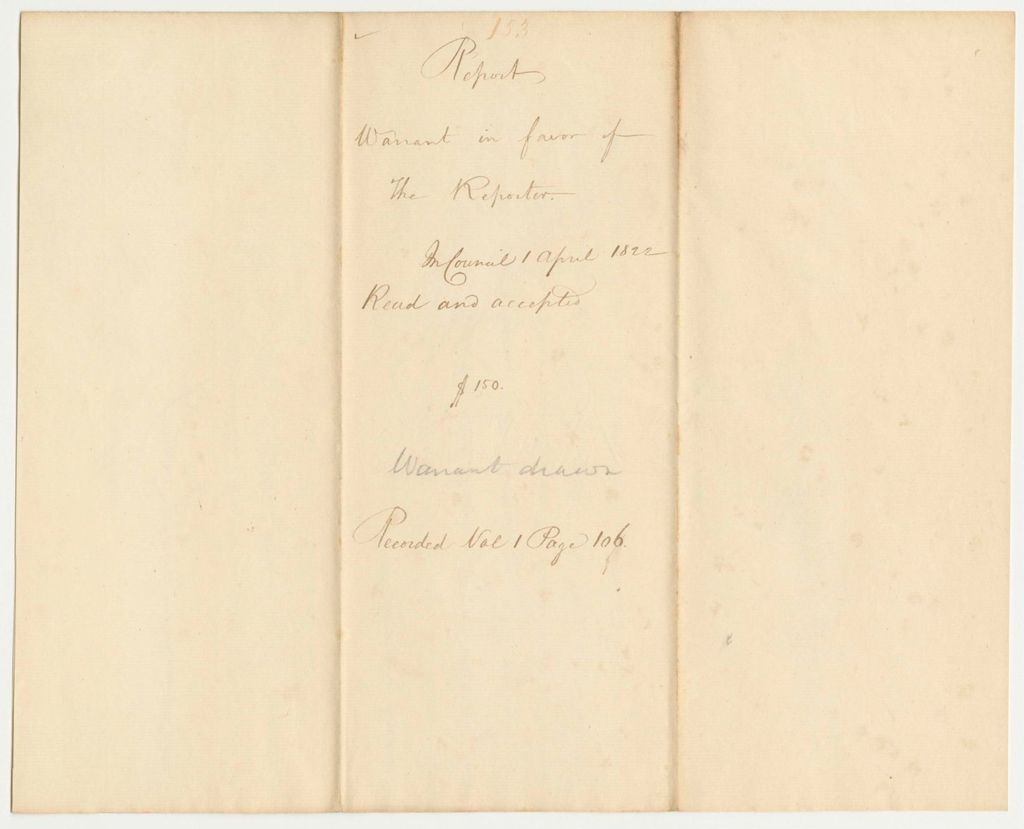 153
Report
Warrant in favor of
The Reporter.
In Council 1 April 1822
Read and accepted
$150.
Warrant drawn
Recorded Vol 1 Page 106.